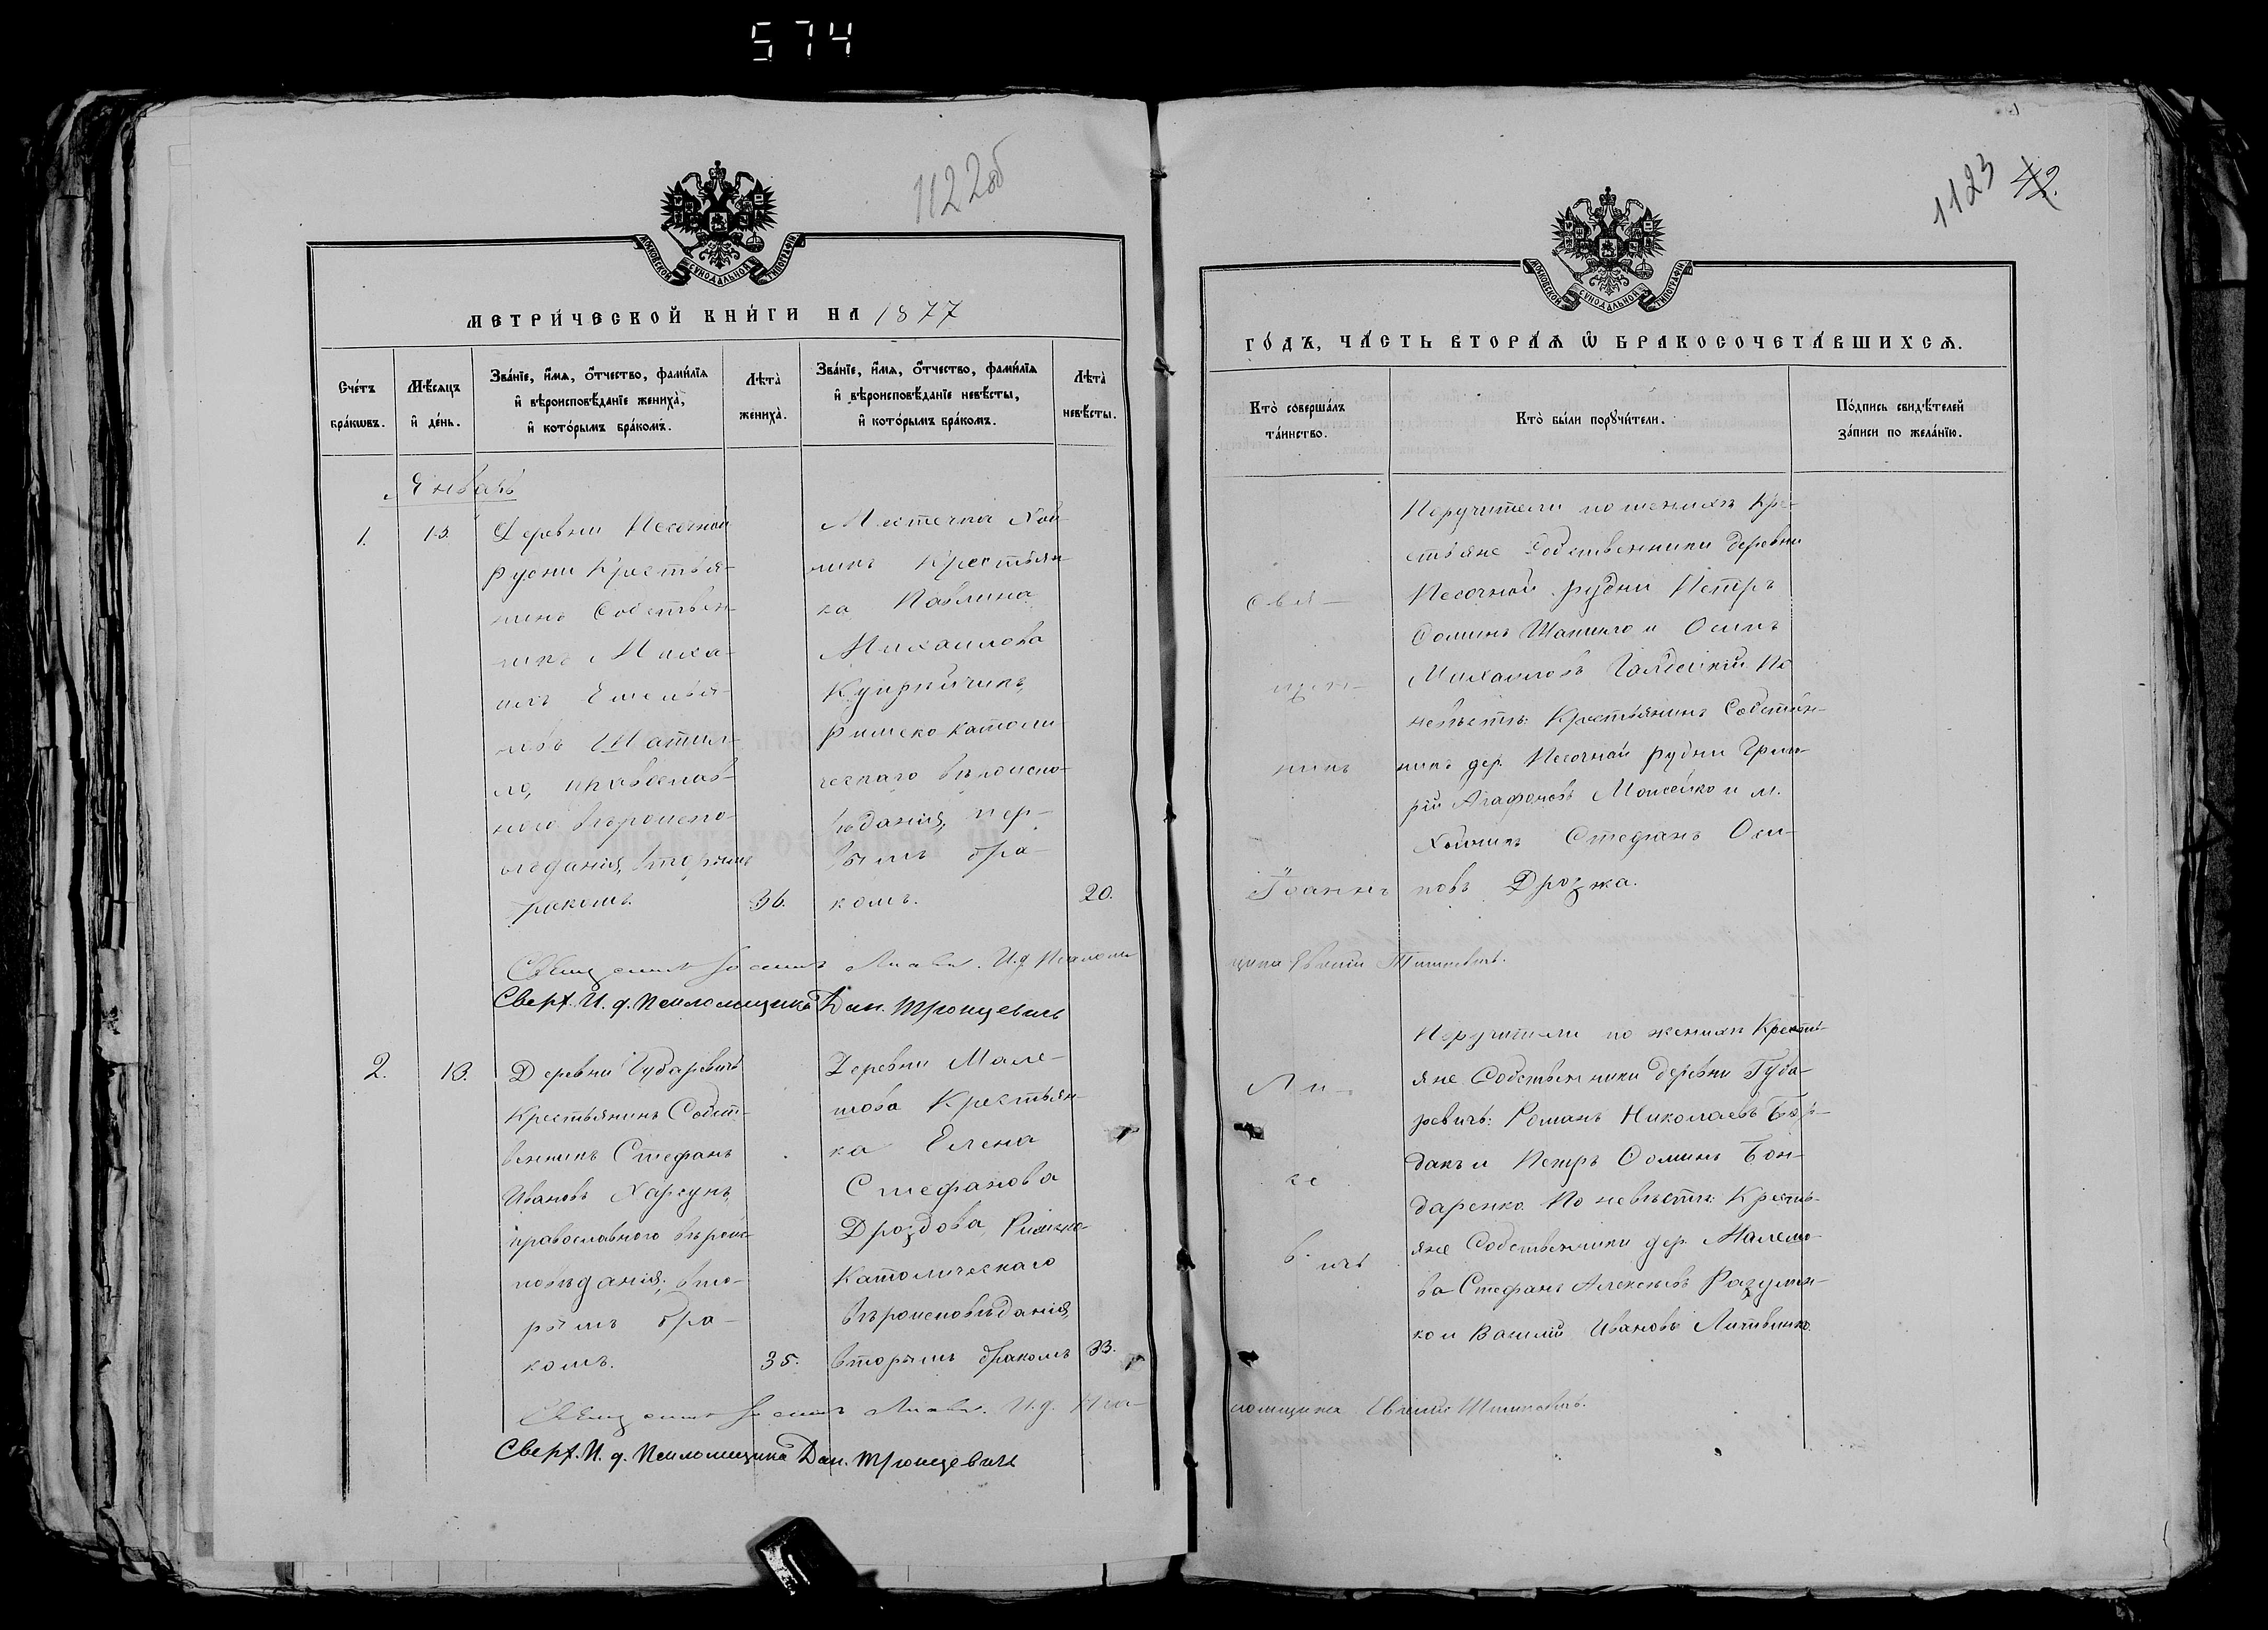 574
1122об
МОСКОВСКОЙ СУНОДАЛЬНОЙ ТИПОГРАФІИ
МЕТРИ́ЧЕСКОЙ КНИ́ГИ НА 1877
Сче́тъ бра́кѡвъ.
Мѣ́сяцъ и҆ де́нь.
Зва́нїе, и҆́мѧ, ѻ҆́тчество, фами́лїѧ
и҆ вѣроисповѣ́данїе жениха̀,
и҆ кото́рымъ бра́комъ.
Лѣта̀ жениха̀.
Зва́нїе, и҆́мѧ, ѻ҆́тчество, фами́лїѧ
и҆ вѣроисповѣ́данїе невѣ́сты,
и҆ кото́рымъ бра́комъ.
Лѣта̀ невѣ́сты.
Январь
1.
13.
Деревни Песочной
Рудни Крестья-
нинъ Собствен-
никъ Миха-
илъ Емелья-
новъ Шатил-
ло, православ-
наго вѣроиспо-
вѣданія, вторымъ
бракомъ.
36.
Местечка Хой-
никъ Крестьян-
ка Павлина
Михаилова
Купрейчикъ,
Римско католи-
ческаго вѣроиспо-
вѣданія, пер-
вымъ бра-
комъ.
20.
Священникъ Іоаннъ И.д. Псаломщ
Сверх. И. д. Псаломщика Дан. Тронцевичъ
2.
13.
Деревни Губаревичъ
Крестьянинъ Собст-
венникъ Стефанъ
Ивановъ Харсунъ,
православного вѣроис-
повѣданія, вто-
рымъ бра-
комъ.
35.
Деревни Мале-
шова Крестьян-
ка Елена
Стефанова
Дроздова, Римско
Католическаго
вѣроисповѣданія,
вторымъ бракомъ
33.
Священникъ Іоаннъ И.д. Пса-
Сверх. И. д. Псаломщика Дан. Тронцевичъ
1123 42.
МОСКОВСКОЙ СУНОДАЛЬНОЙ ТИПОГРАФІИ
ГО́ДЪ, ЧА́СТЬ ВТОРА́Ѧ Ѡ҆ БРАКОСОЧЕТА́ВШИХСѦ.
Кто̀ соверша́лъ та́инство.
Кто̀ бы́ли порꙋчи́тели.
По́дпись свидѣ́телей за́писи по жела́нїю.
Свя-
щен-
никъ
Іоаннъ
Поручители по женихѣ Кре-
стьяне Собственники деревни
Песочной Рудни Петръ
Ѳоминъ Шатилло и Осипъ
Михаиловъ По
невѣстѣ: Крестьянинъ Собствен-
никъ дер. Песочной Рудни Григо-
рій Агафоновъ Моисейко и м.
Хойникъ Стефанъ Оси-
повъ Дрозжа.
щика Евѳимій
Ли-
се
вичъ
Поручители по женихѣ Кресть-
яне Собственники деревни Губа-
ревичъ: Романъ Николаевъ Бур-
дакъ и Петръ Ѳоминъ Бон-
даренко. По невѣстѣ: Кресть-
яне Собственники дер. Малешо-
ва Стефанъ Алексѣевъ Разумен-
ко и Василій Ивановъ Литвинко.
ломщика Евѳимій